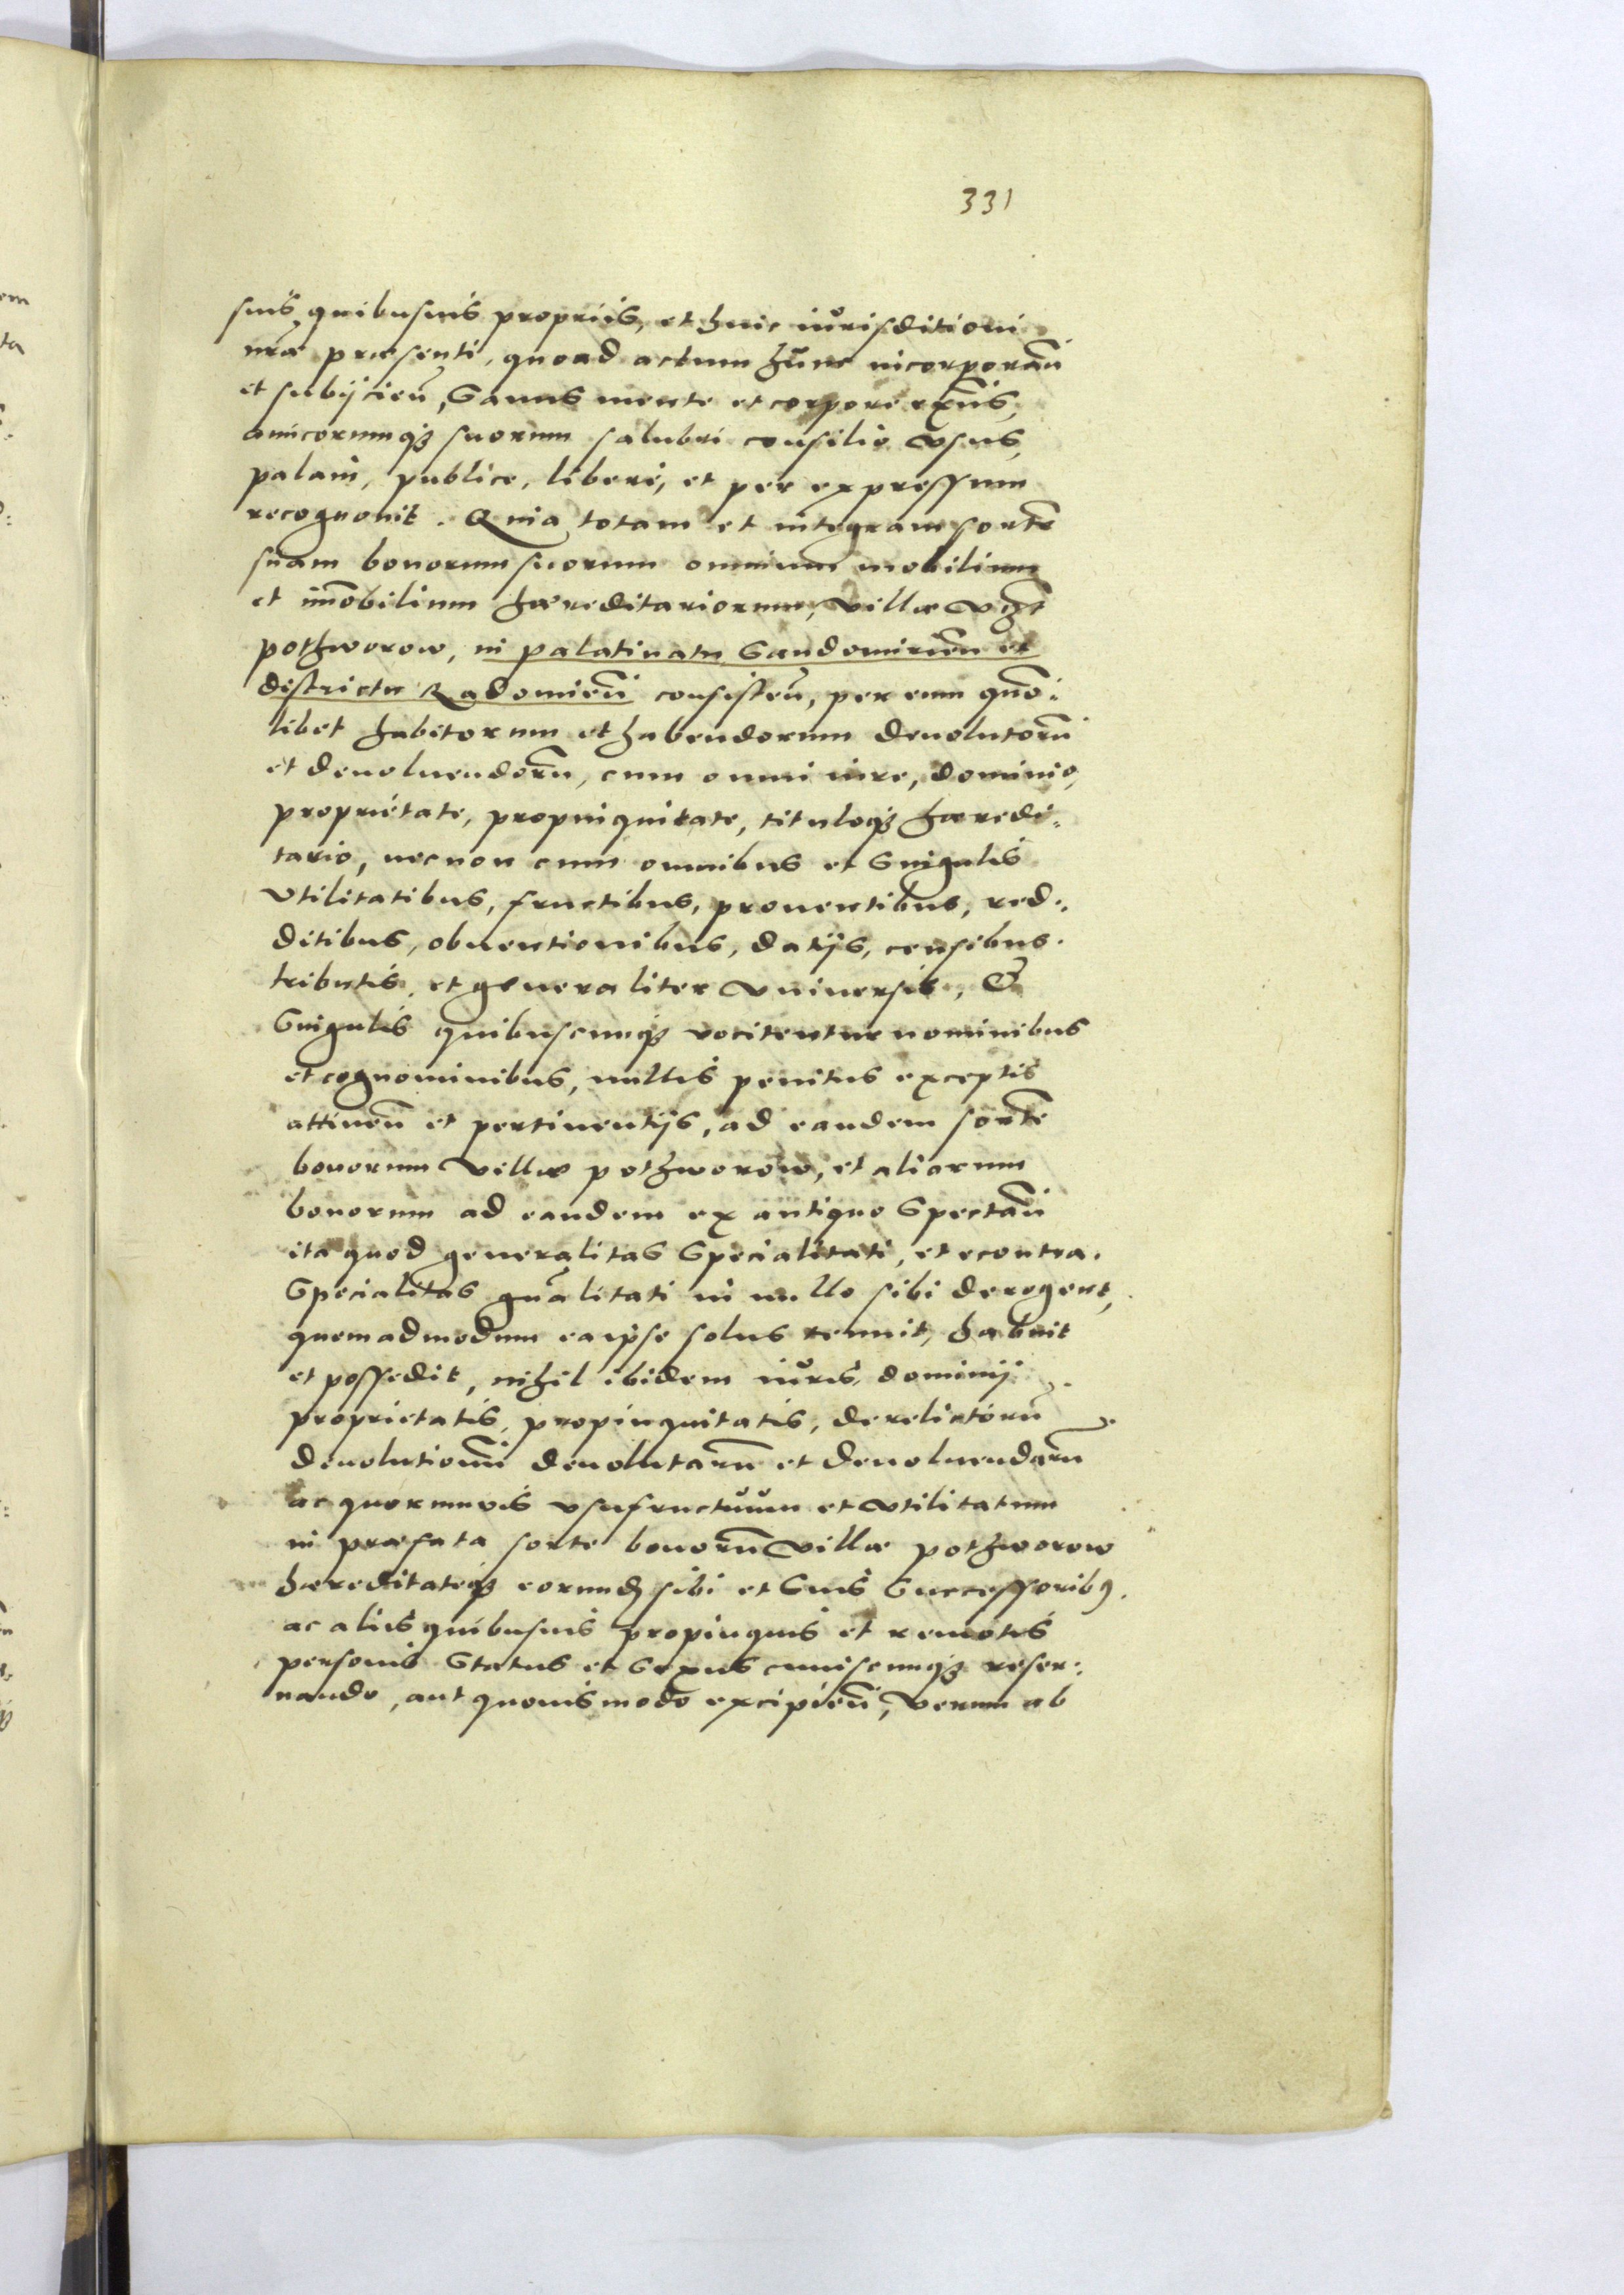 331
suis quibusuis propriis, et huic iurisditioni
nr̃æ præsenti, quoad actum hunc incorporan̄
et subijcien̄, Sanus mente et corpore exn̄s,
amicorumqꝫ suorum salubri consilio vsus,
palam, publice, libere, et per expressum
recognouit. Quia totam et integram sortē
suam bonorum suorum omnium mobilium
et im̄obilium hæreditariorum, villæ
pothworow, in palatinatu Sandomirien̄ et
districtu Radomien̄ consisten̄, per eum quō:
libet habitorum et habendorum deuolutorū
et deuoluendorū, cum omni iure, dominio,
proprietate, propinquitate, tituloqꝫ hæredi:
tario, necnon cum omnibus et Singulis
vtilitatibus, fructibus, prouentibus, red:
ditibus, obuentionibus, datijs, censibus.
tributis, et generaliter vniuersis, &
Singulis quibuscumqꝫ vocitentur nominibus
et cognominibus, nullis penitus exceptis
attinen̄ et pertinentijs, ad eandem sortē
bonorum villæ pothworow, et aliarum
bonorum ad eandem ex antiquo Spectan̄
ita quod generalitas Specialitati, et econtra.
Specialitas gn̄alitati in nullo sibi derogent,
quemadmodum ea ipse solus tenuit, habuit
et possedit, nihil ibidem iuris, dominij
proprietatis, propinquitatis, derelictorū
deuolutionū deuolutarū et deuoluendarū
ac quorumuis vsufructuum et vtilitatum
in præfata sorte bonorū villæ pothworow
hæreditateqꝫ eorund̄ sibi et Suis Successoribꝰ.
ac aliis quibusuis propinquis et remotis
personis Status et Sexus cuiuscumqꝫ reser:
uando, aut quouismodo excipien̄, verum ab